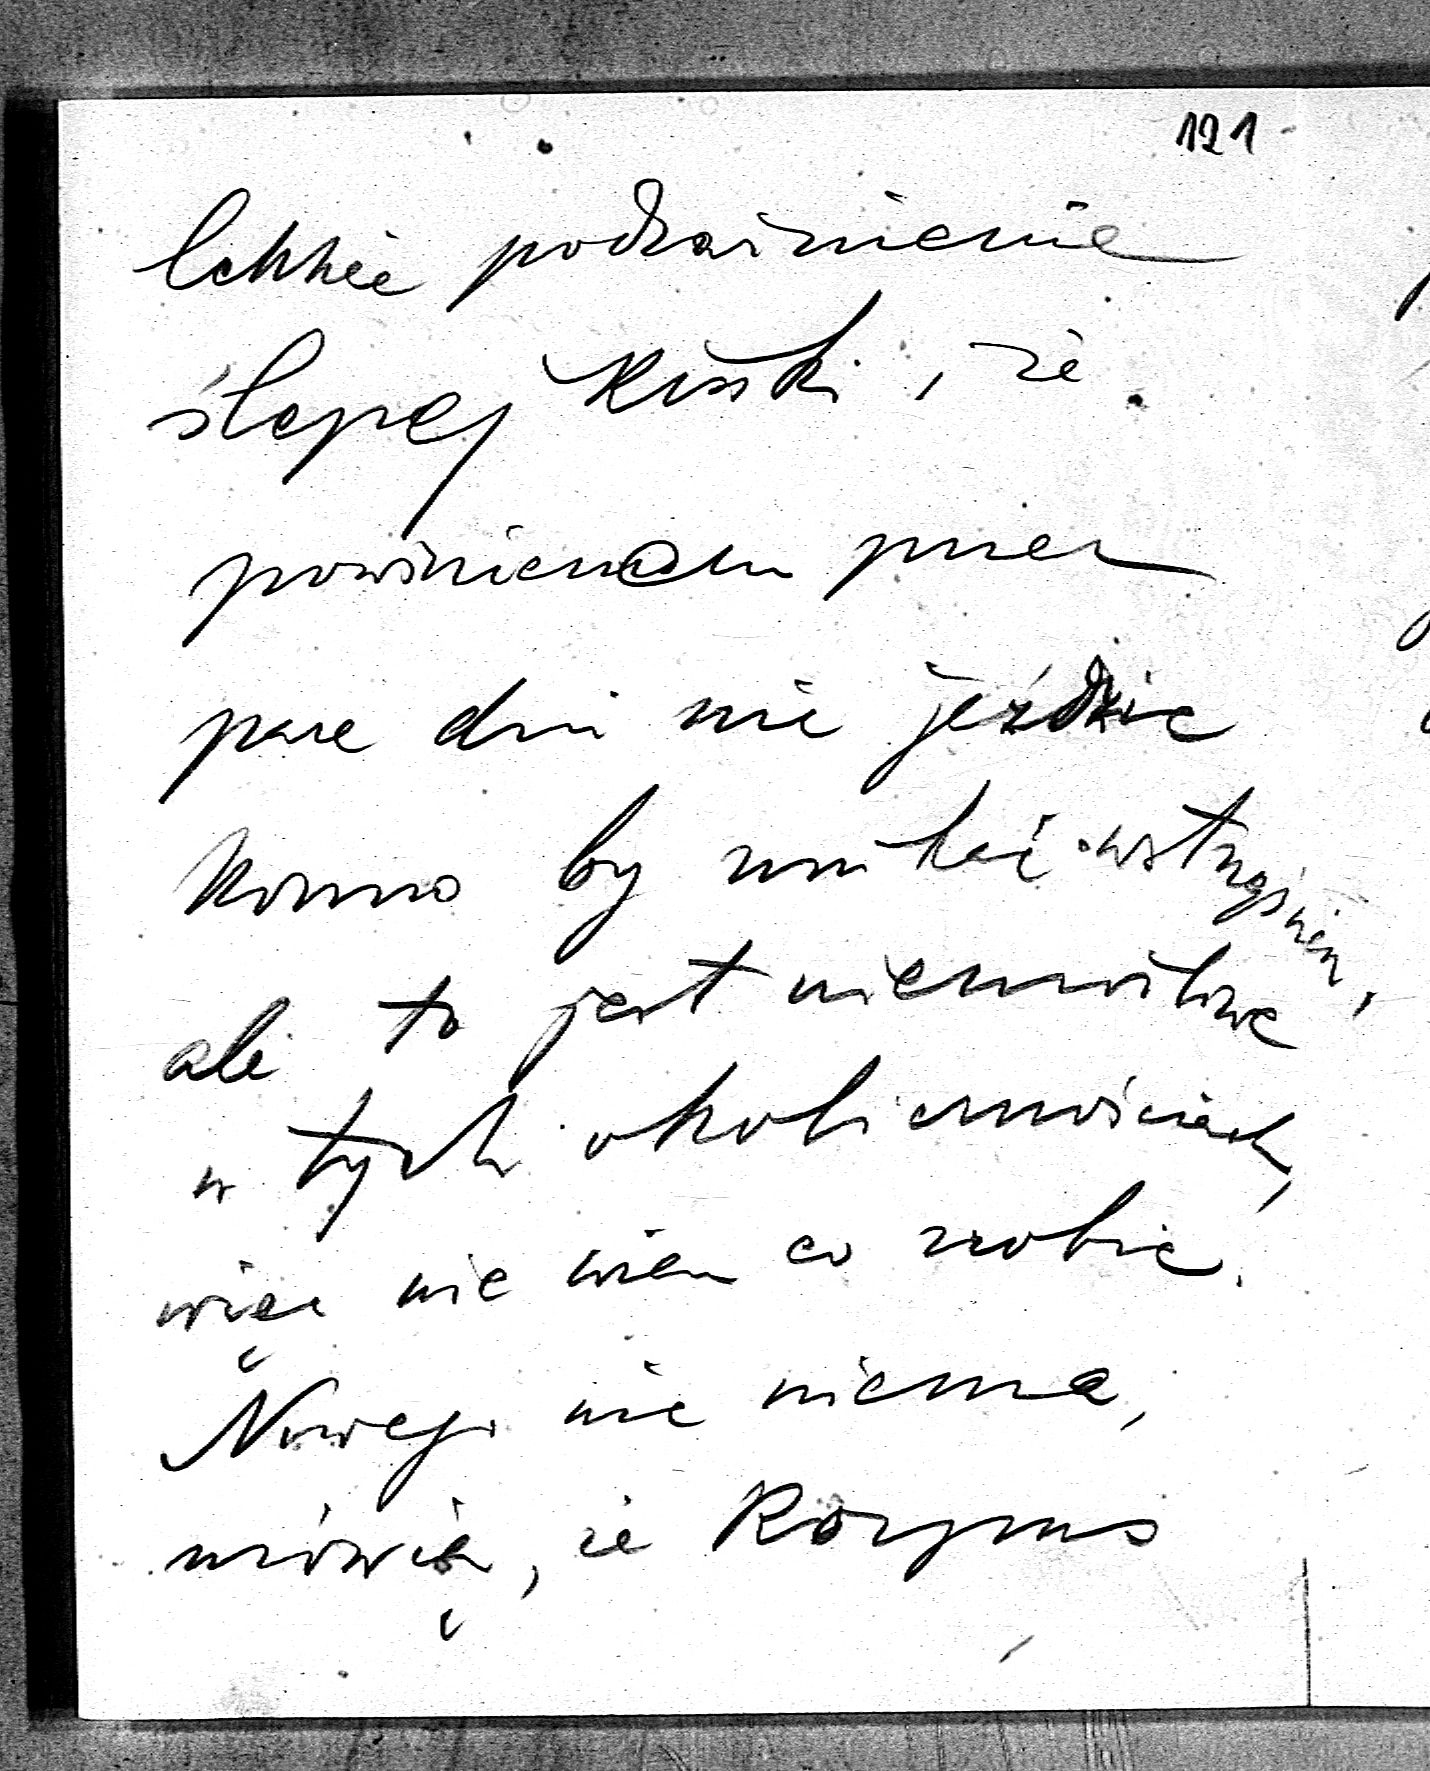 121
lekkie podrażnienie
ślepej kiszki, że
powinienem przez
parę dni nie jeździć
konno by unikać wstrząśnień,
ale to jest niemożliwe
w tych okolicznościach,
więc nie wiem co zrobić.
Nowego nic niema,
mówią, że Korpus